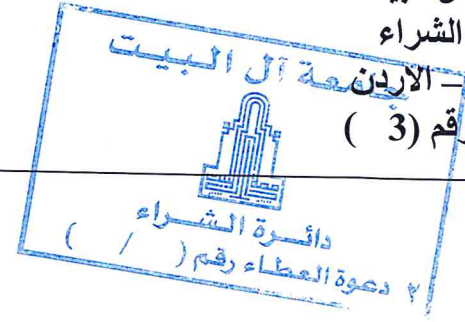 الشراء
– الاردن
رقم (3 )
جامعة آل البيت
دائرة الشراء
٢ دعوة العطاء رقم ( / )